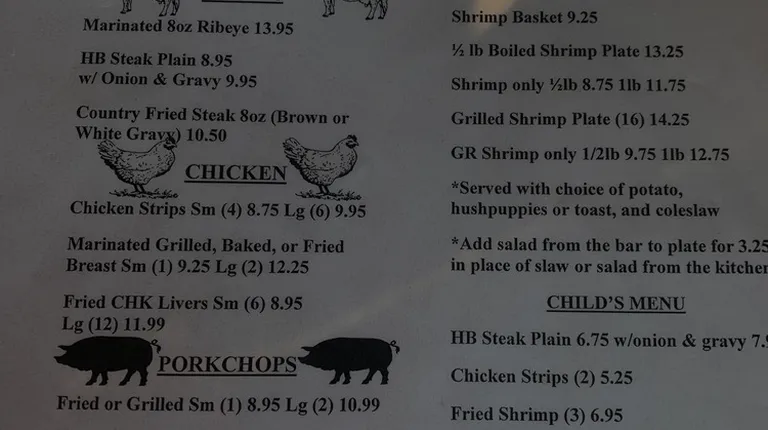 Marinated 8oz Ribeye 13.95
HB Steak Plain 8.95
w/ Onion & Gravy 9.95
Country Fried Steak 8oz (Brown or
White Gravy) 10.50
CHICKEN
Chicken Strips Sm (4) 8.75 Lg (6) 9.95
Marinated Grilled, Baked, or Fried
Breast Sm (1) 9.25 Lg (2) 12.25
Fried CHK Livers Sm (6) 8.95
Lg (12) 11.99
PORKCHOPS
Fried or Grilled Sm (1) 8.95 Lg (2) 10.99
Shrimp Basket 9.25
½ lb Boiled Shrimp Plate 13.25
Shrimp only ½lb 8.75 1lb 11.75
Grilled Shrimp Plate (16) 14.25
GR Shrimp only 1/2lb 9.75 1lb 12.75
*Served with choice of potato,
hushpuppies or toast, and coleslaw
*Add salad from the bar to plate for 3.25
in place of slaw or salad from the kitchen
CHILD'S MENU
HB Steak Plain 6.75 w/onion & gravy
Chicken Strips (2) 5.25
Fried Shrimp (3) 6.95